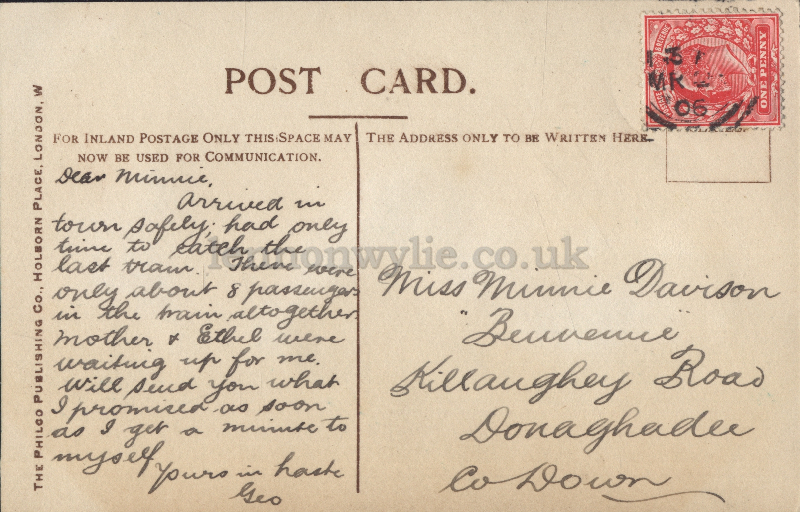 POST CARD.
FOR INLAND POSTAGE ONLY THIS SPACE MAY
NOW BE USED FOR COMMUNICATION.
THE ADDRESS ONLY TO BE WRITTEN HERE.
THE PHILCO PUBLISHING CO., HOLBORN PLACE, LONDON, W
Dear Minnie,
Arrived in
town safely; had only
time to catch the
last tram. There were
only about 8 passengers
in the train altogether.
Mother & Ethel were
waiting up for me.
Will send you what
I promised as soon
as I get a minute to
myself
Yours in haste
Geo
Miss Minnie Davison
"Beuvenue"
Killaughey Road
Donaghadee
Co Down
ONE PENNY
MR
06
lennonwylie.co.uk